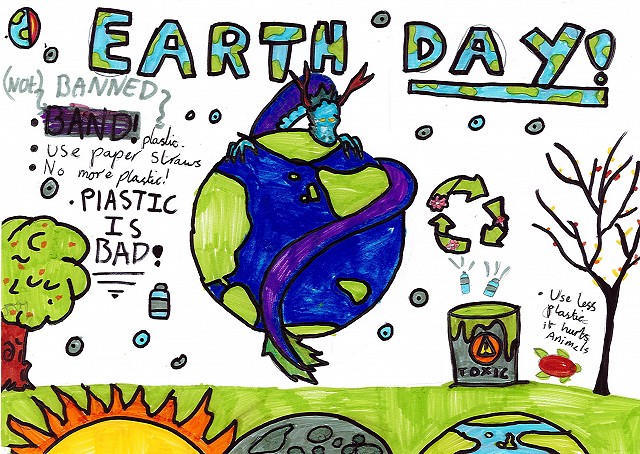 EARTH DAY!
(NOT) BANNED
• BAND! plastic.
• Use paper straws
• No more plastic!
• PLASTIC
IS
BAD!
• Use less
plastic
it hurts
Animals
TOXIC